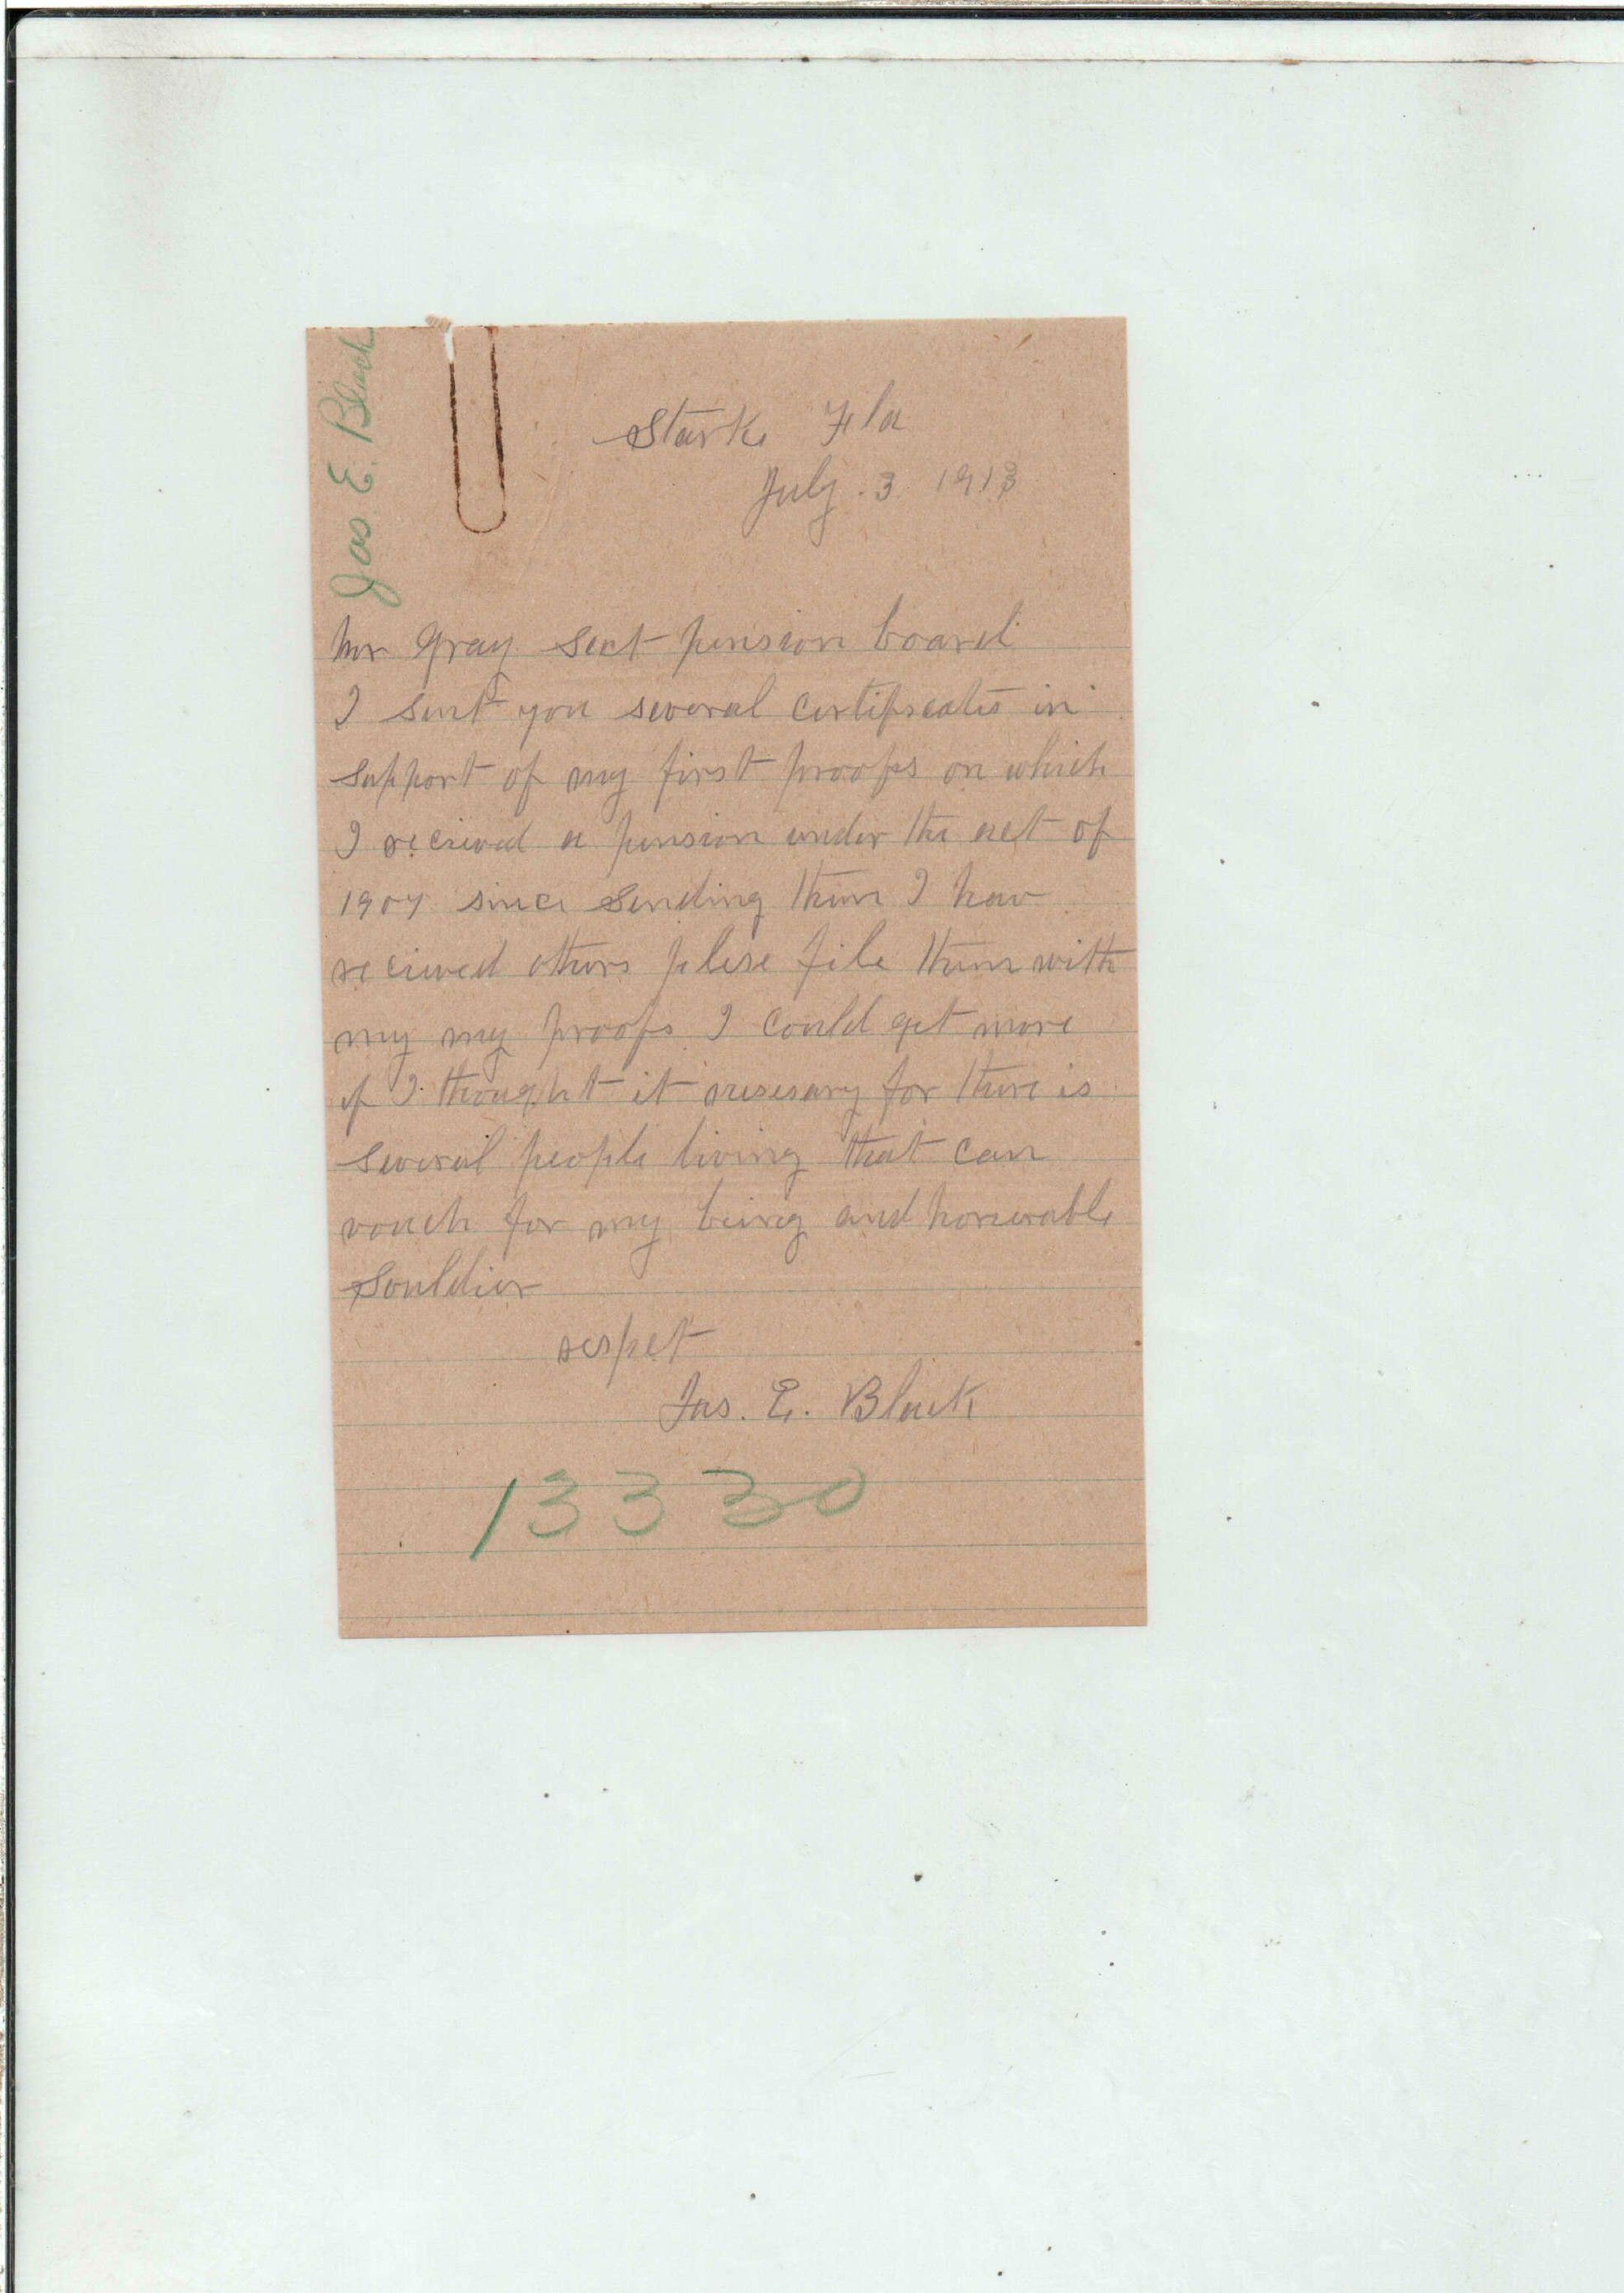 Jas. E. Black
Starke Fla
July. 3 1913
Mr Gray Sect pension board
I sent you several certificates in
support of my first proofs on which
I recieved a pension under the act of
1907 since sending them I hav
recieved others plese file them with
my my proofs I could get more
if I thought it nesesary for there is
several people living that can
vouch for my being and honerable
Souldier
respet
Jas. E. Black
13330